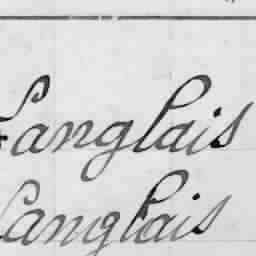 Langlais
Langlais